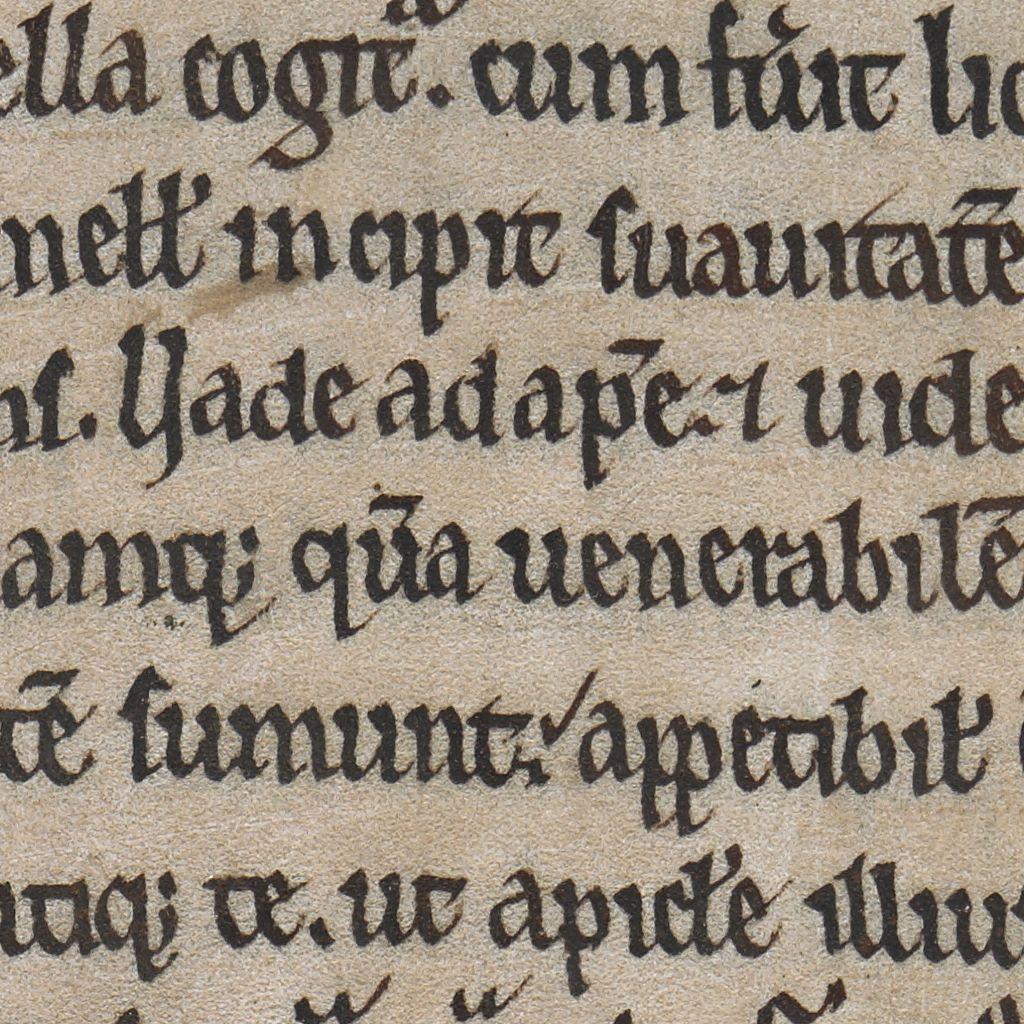 ella cogit̄. cum fu̾it lic
mell̾ incipit suauitatē
ns. Vade ad ap̄e. ⁊ uide
amq; qu̅a uenerabilē
tē sumunt; appetibil̾
ntiq; te. ut apicl̾e illius